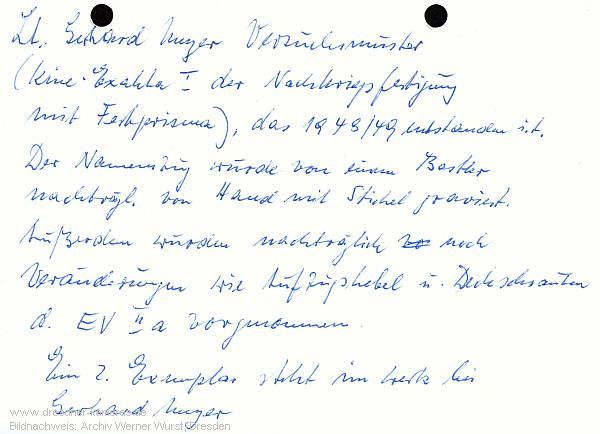 Lt. Gerhard Unger Versuchsmuster
(Kine-Exakta I der Nachkriegsfertigung
mit Festprisma), das 1948/49 entstanden ist.
Der Namenszug wurde von einem Bastler
nachträgl. von Hand mit Stichel graviert.
Außerdem wurden nachträglich noch
Veränderungen wie Aufzughebel u. Deckschrauben
d. EV II a vorgenommen.
Ein 2. Exemplar steht im Werk bei
Gerhard Unger
www.dresdner-kameras.de
Bildnachweis: Archiv Werner Wurst, Dresden